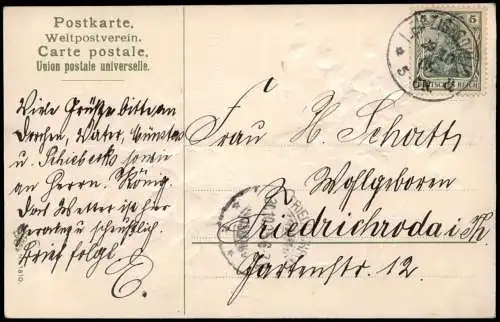 Postkarte.
Weltpostverein.
Carte postale.
Union postale universelle.
Viele Grüße bitte an
Dorchen, Vater, Günther
u. Schieberts sowie
an Herrn König.
Das Wetter ist hier
geradezu scheußlich.
Brief folgt.
E.
Frau H. Schott
Wohlgeboren
Friedrichroda i. Th.
Gartenstr. 12.
5
DEUTSCHES REICH